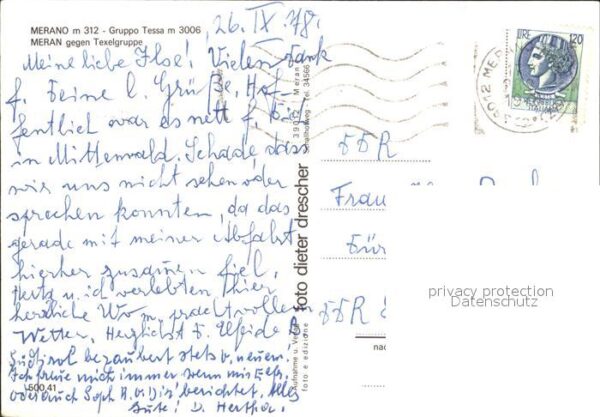 MERANO m 312 - Gruppo Tessa m 3006
MERAN gegen Texelgruppe
26. IX 78.
Meine liebe Ilse! Vielen Dank
f. Deine l. Grüße, Hof-
fentlich war es nett f.
in Mittenwald. Schade dass
wir uns nicht sehen oder
sprechen konnten, da das
gerade mit meiner Abfahrt
hierher zusammen fiel.
u. ich verlebten hier
herrliche m. prachtvollem
Wetter. Herzlichst
Südtirol bezaubert stets v. neuem.
Ich freue mich immer wenn
oder auch berichtet. Alles
Gute! D. Hertha.
500.41
foto dieter drescher
39012 - Meran
Aufnahme u. Verlag
foto e edizione
LIRE 120
39012 MERAN
DDR
Frau
DDR
privacy protection
Datenschutz
nac